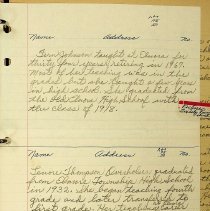 Name Address No.
Fern Johnson taught at Elnora for
thirty four years, retiring in 1967.
Most of her teaching was in the
grades, but she taught a few years
in high school. She graduated from
the Old Elnora High School with
the class of 1918.
Name Address No.
Lenore Thompson graduated
from Elmore Township High School
in 1932. She began teaching fourth
grade and later transferred to
first grade. Her